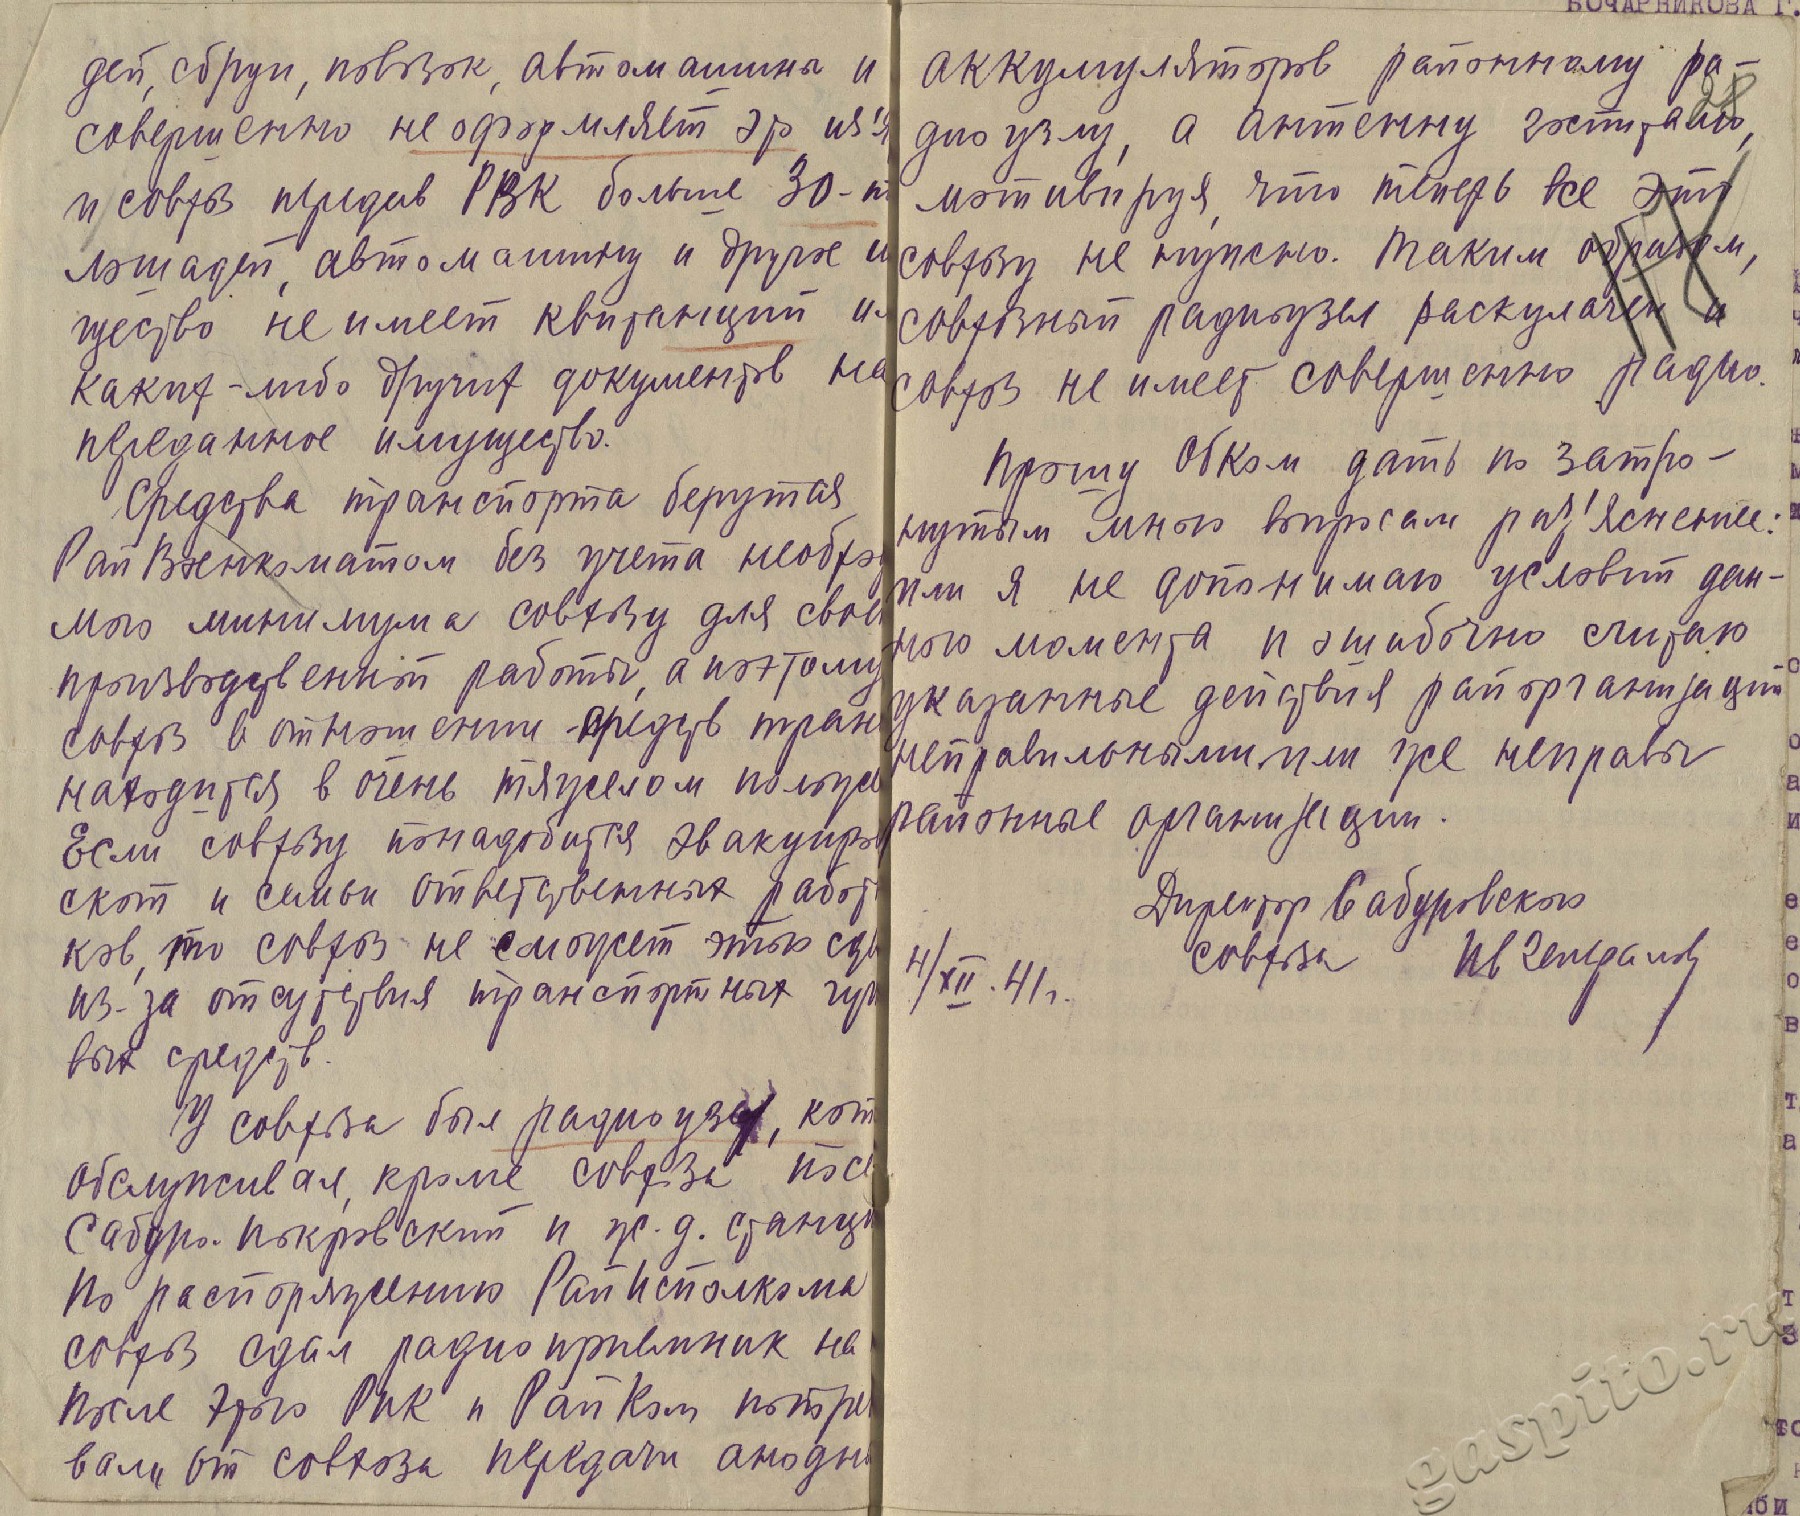 дей, сбруи, повозок, автомашины и
совершенно не оформляет это из'я
и совхоз передав РВК больше 30-т
лошадей, автомашину и друг. и
щество не имеет квитанций ил
каких-либо других документов на
переданное имущество.
Средства транспорта берутся
РайВоенкоматом без учета необхо
мого минимума совхозу для свое
производственной работы, а поэтому
совхоз в отношении средств тран
находится в очень тяжелом положе
Если совхозу понадобится эвакуиро
скот и семьи ответственных работ
ков, то совхоз не сможет этого сде
из-за отсутствия транспортных гу
вых средств.
У совхоза был радиоузел, кот
обслуживал, кроме совхоза посе
Сабуро-Покровский и ж.д. станци
По распоряжению РайИсполкома
совхоз сдал радиоприемник на
После этого РИК и РайКом потре
вали от совхоза передачи анодны
БОЧАРНИКОВА Г.
28
аккумуляторов районному ра-
диоузлу, а антенну
мотивируя, что теперь все это
совхозу не нужно. Таким образом,
совхозный радиоузел раскулачен и
совхоз не имеет совершенно радио.
Прошу Обком дать по затро-
нутым мною вопросам раз'яснение:
или я не допонимаю условий дан-
ного момента и ошибочно считаю
указанные действия райорганизаций
неправильными или же неправы
районные организации.
Директор Сабуровского
совхоза
4/XII.41г.
gaspito.ru